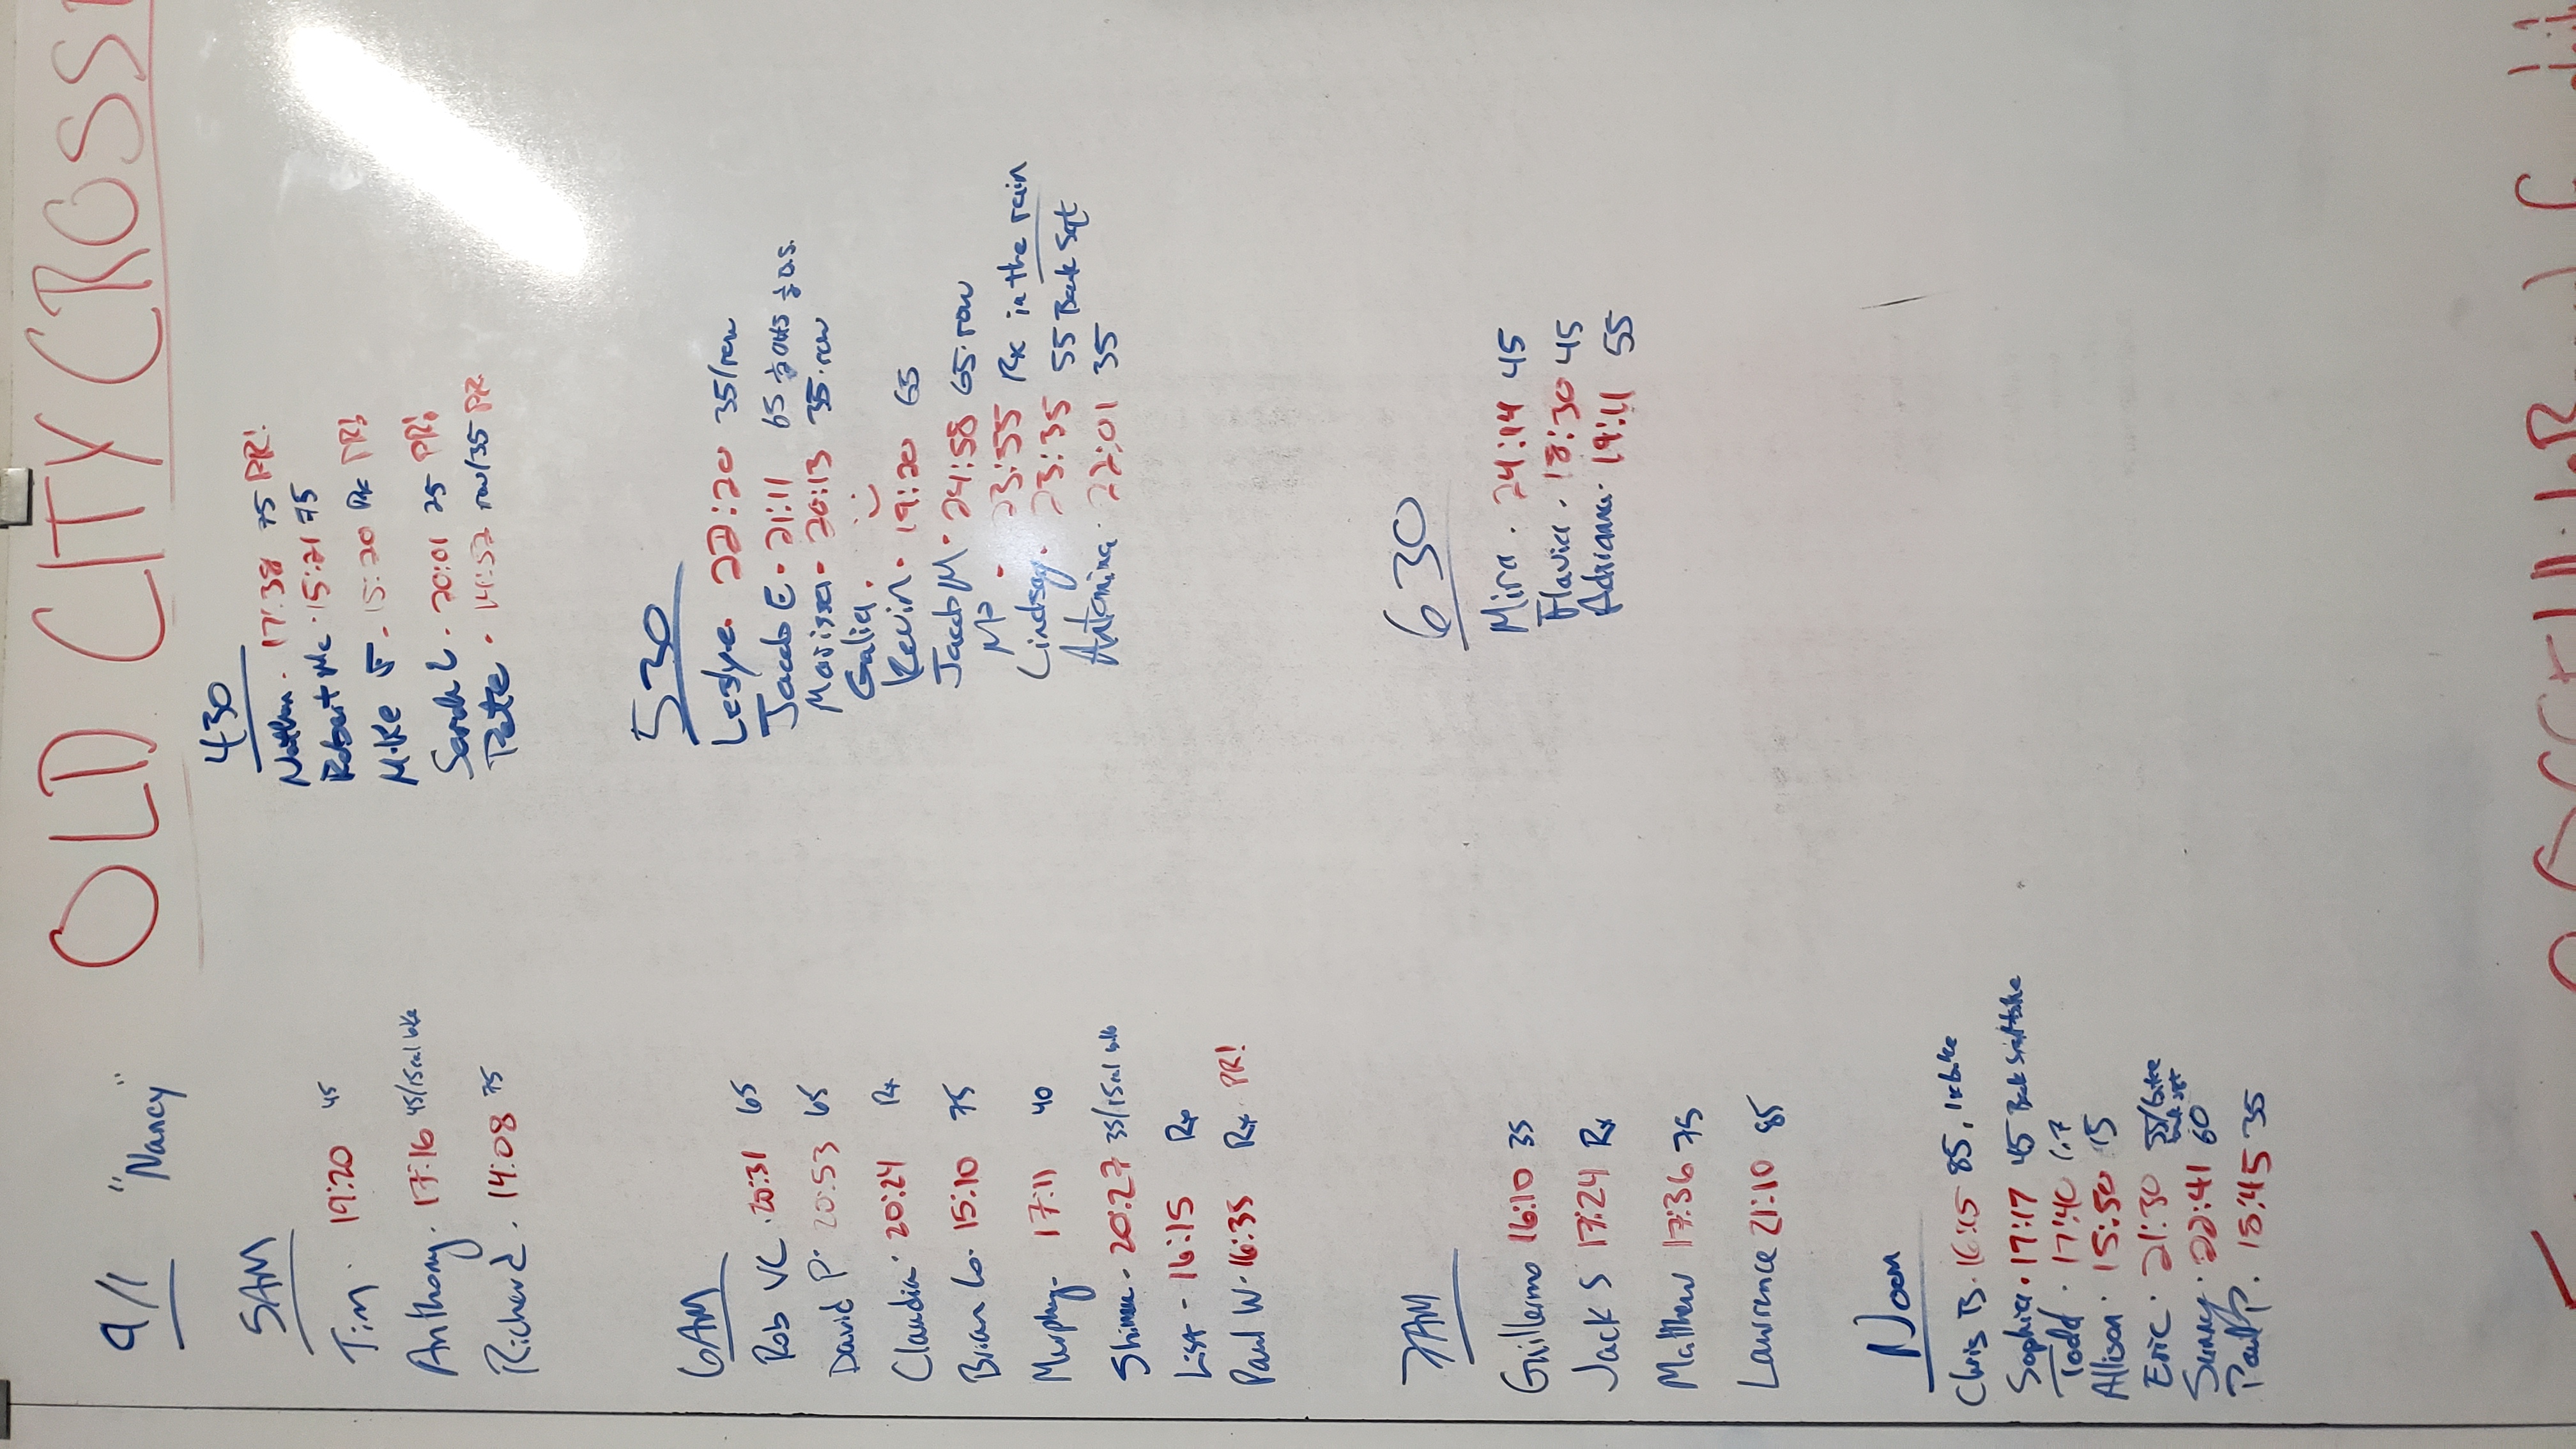 OLD CITY CROSSF
9/1 "Nancy"
5AM
Tim. 19:20 45
Anthony. 17:16 45/15cal bike
Richard. 14:08 75
6AM
Rob VC. 20:31 65
David P. 20:53 65
Claudia. 20:24 Rx
Brian Lo. 15:10 75
Murphy 17:11 40
Shimae. 20:27 35/15cal bike
List - 16:15 Rx
Paul W. 16:35 Rx PR!
7AM
Guillermo 16:10 35
Jack S 17:24 Rx
Matthew 17:36 75
Lawrence 21:10 85
Noon
Chris B. 16:15 85, 1x bike
Sophia. 17:17 45 Back squat/bike
Todd. 17:40
Allison. 15:50 15
Eric. 21:30 35/bike
Sunny. 22:41 60
Paul P. 15:45 35
430
Nathan. 17:38 75 PR!
Robert Mc. 15:21 75
Mike F. 15:20 Rx PR!
Sarah L. 20:01 25 PR!
Pete. 14:52 row/35 PR
530
Leslye. 22:20 35/row
Jacob E. 21:11 65 ½ OHS ½ B.S.
Marissa. 20:13 35. row
Galia.
Kevin. 19:20 65
Jacob M. 24:58 65. row
Mo. 23:55 Rx in the rain
Lindsay. 23:35 55 Back Sqt
Antonina. 22:01 35
630
Mira. 24:14 45
Flavia. 18:30 45
Adriana. 19:11 55